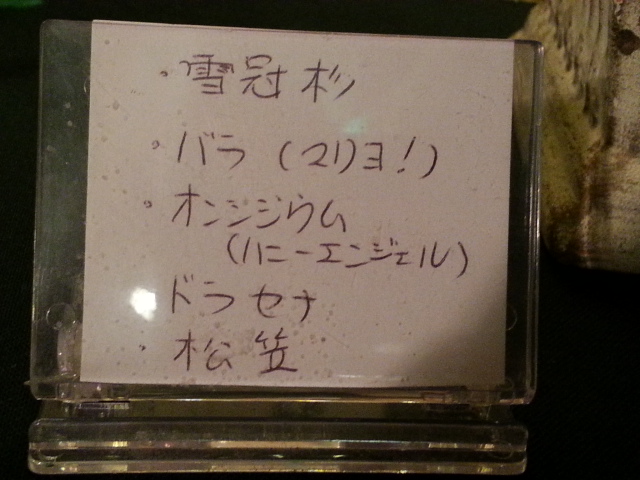 ・雪冠杉
・バラ (マリヨ!)
・オンシジウム
(ハニーエンジェル)
ドラセナ
・松笠